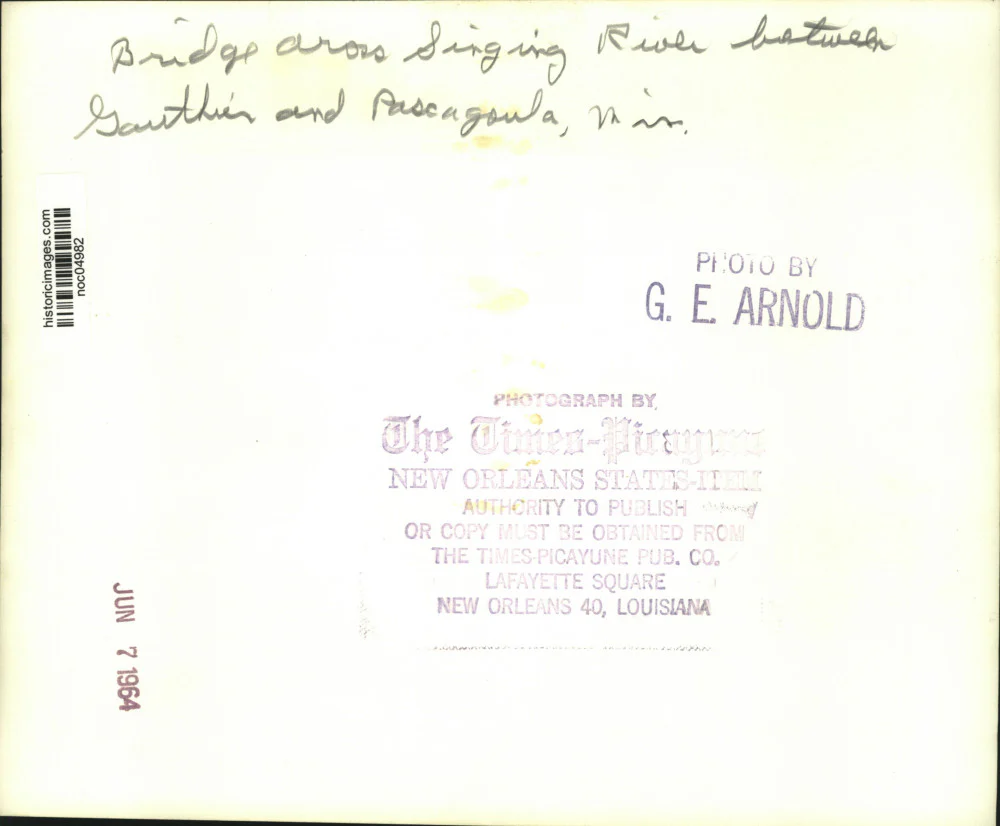 Bridge across Singing River between
Gauthier and Pascagoula, Miss.
historicimages.com
noc04982
PHOTO BY
G. E. ARNOLD
PHOTOGRAPH BY
The Times-Picayune
NEW ORLEANS STATES-ITEM
AUTHORITY TO PUBLISH
OR COPY MUST BE OBTAINED FROM
THE TIMES-PICAYUNE PUB. CO.
LAFAYETTE SQUARE
NEW ORLEANS 40, LOUISIANA
JUN 7 1964